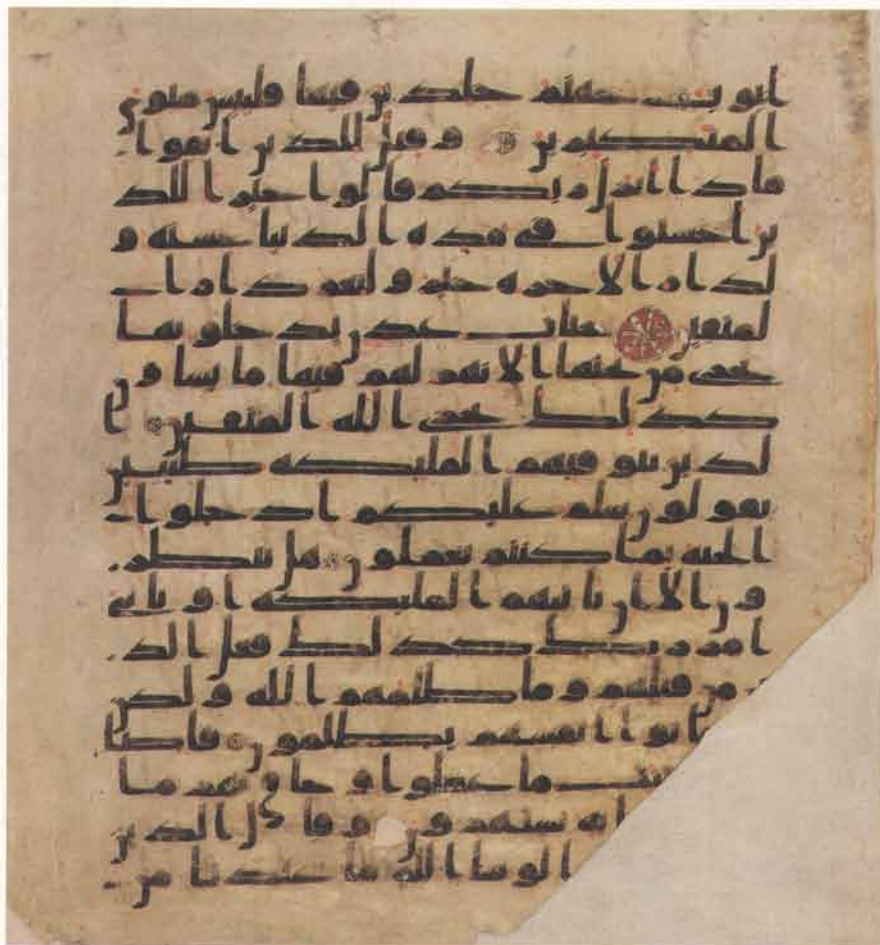 ابوب جهنم خلدين فيها فلبيس مثوى
المتكبرين وقيل للذين اتقوا
ماذا انزل ربكم قالوا خيرا للذ
ين احسنوا في هذه الدنيا حسنة و
لدار الاخرة خير ولنعم دار ا
لمتقين جنات عدن يدخلونها
تجرى من تحتها الانهر لهم فيها ما يشاون
كذلك يجزى الله المتقين ا
لذين تتوفيهم المليكة طيبين
يقولون سلم عليكم ادخلوا
الجنة بما كنتم تعملون هل ينظر
ون الا ان تاتيهم المليكة او ياتى
امر ربك كذلك فعل الذ
ين من قبلهم وما ظلمهم الله ولكن
كانوا انفسهم يظلمون فاصا
ما عملوا وحاق بهم ما
ا به يستهزون وقال الذين
ا لو شا الله ما عبدنا من